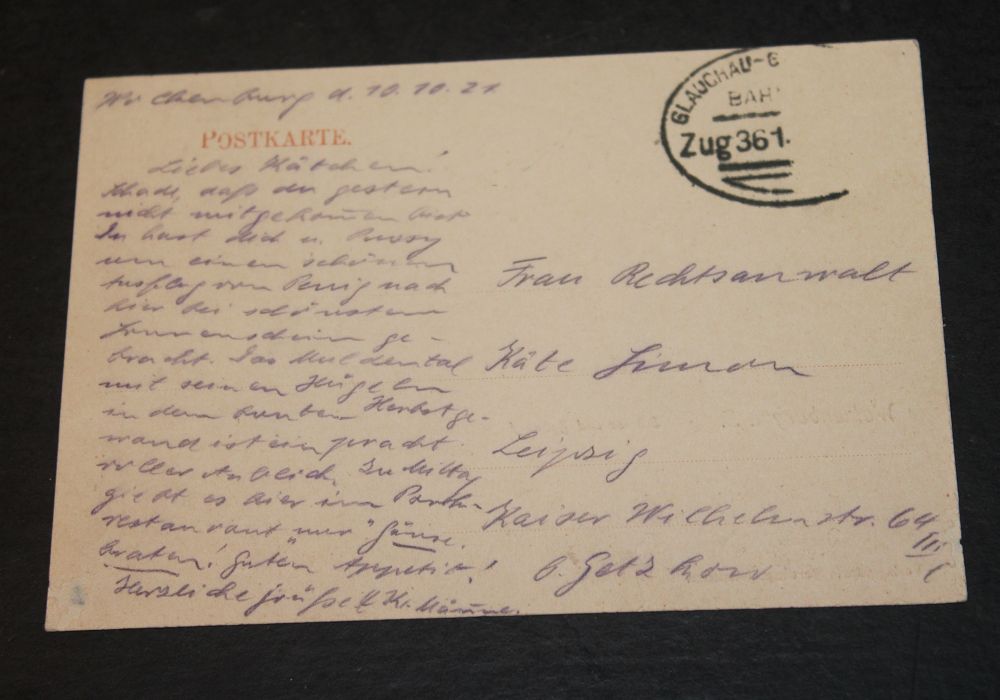 Wolkenburg d. 10.10.21
POSTKARTE.
Liebes Kätchen!
Schade, daß du gestern
nicht mitgekom̄en bist
Du hast dich u. Pussy
um einen schönen
Ausflug von Penig nach
hier bei schönstem
Sonnenschein ge-
bracht. Das Muldental
mit seinen Hügeln
in dem bunten Herbstge-
wand ist ein pracht
voller Anblick. Zu Mittag
giebt es hier im
restaurant nur "Gänse.
braten"! Guten Appetit!
Herzliche Grüße
GLAUCHAU-
BAH
Zug 361.
Frau Rechtsanwalt
Käte Simon
Leipzig
Kaiser Wilhelmstr. 64
III
b. Getzkow